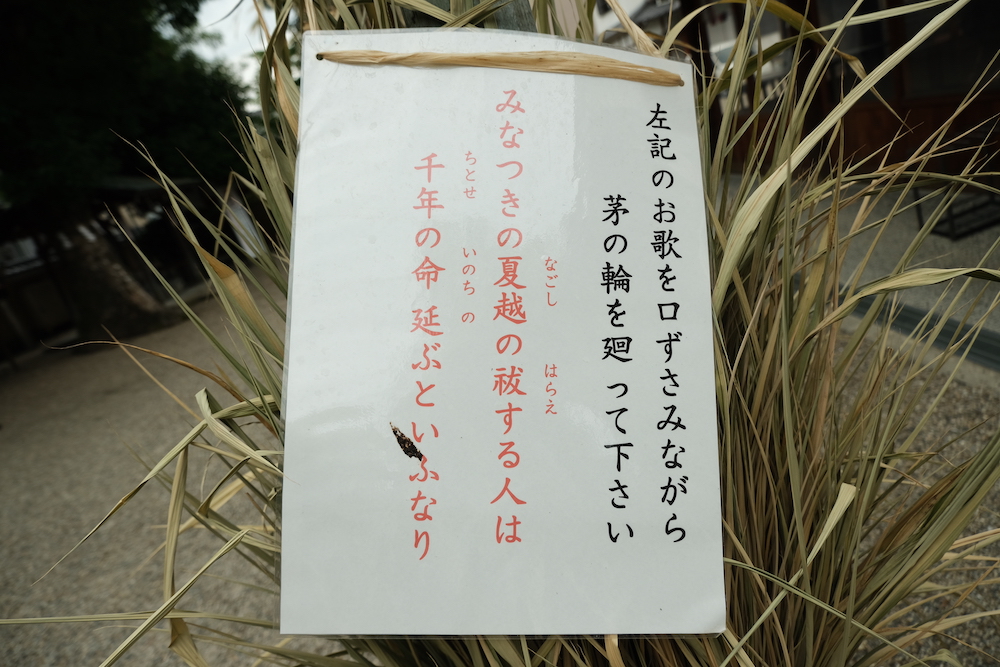 左記のお歌を口ずさみながら
茅の輪を廻って下さい
なごし はらえ
みなつきの夏越の祓する人は
ちとせ いのちの
千年の命延ぶといふなり